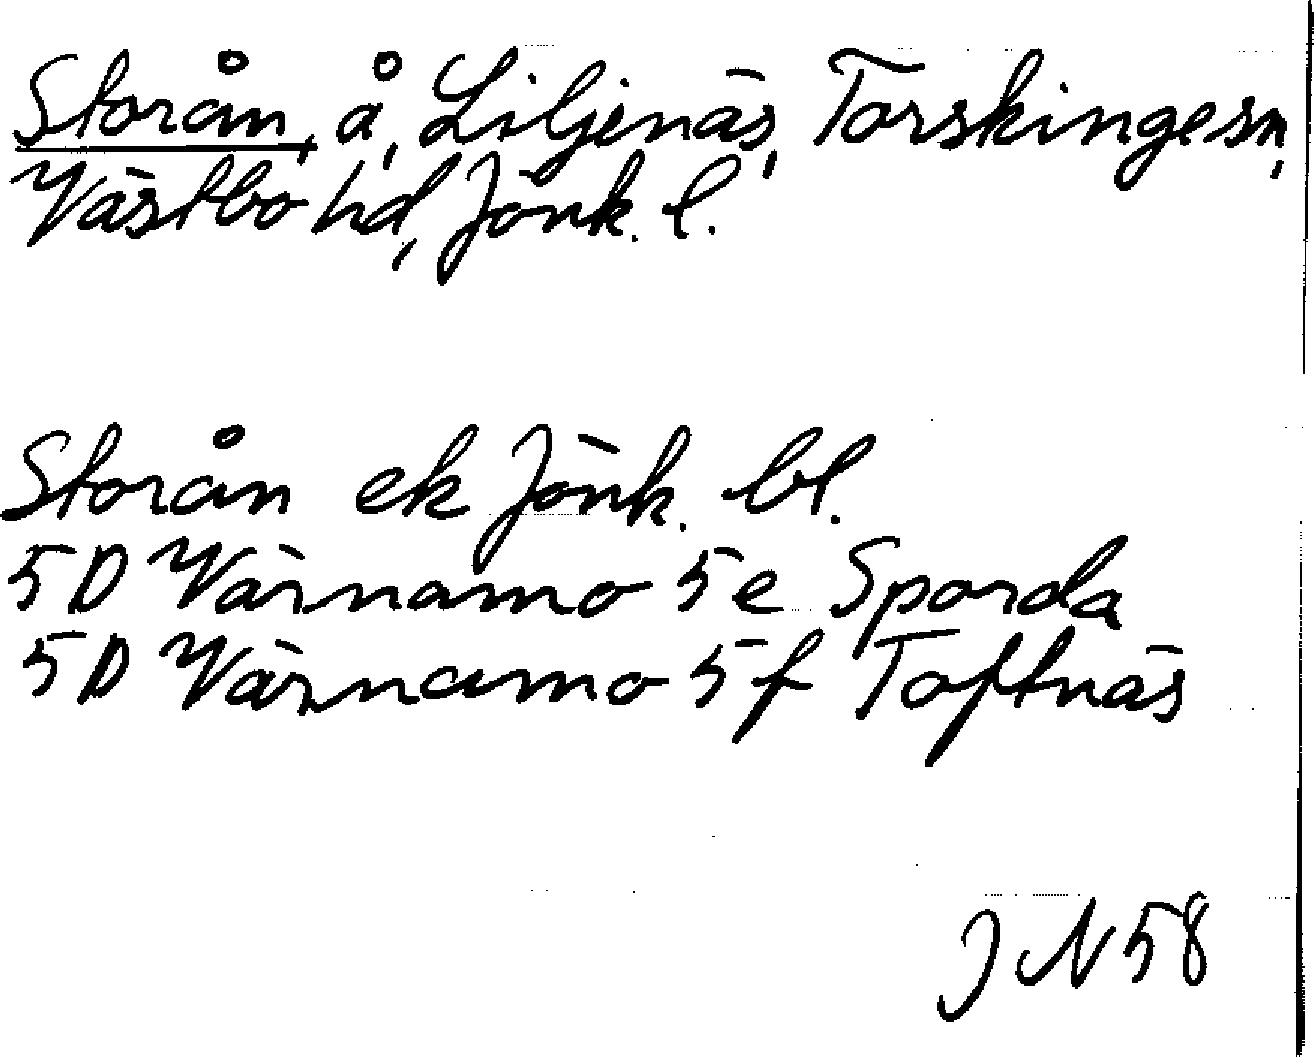 Storån, å, Liljenäs, Torskinge sn,
Västbo hd, Jönk. l.
Storån ek Jönk. bl.
5D Värnamo 5e Sporda
5D Värnamo 5f Toftnäs
JN 58